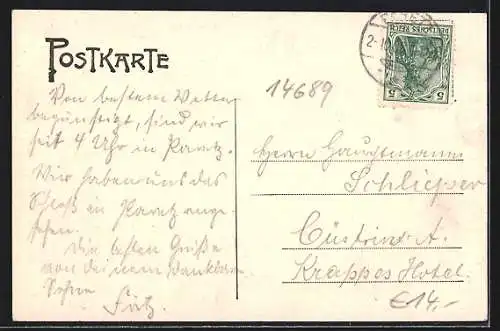 POSTKARTE
14689
Von bestem Wetter
begünstigt, sind wir
seit 4 Uhr in
Wir haben uns das
Schloß in ange-
sehen.
Die besten Grüße
von deinem dankbaren
Sohne
Fritz.
DEUTSCHES REICH
5 5
Herrn Hauptmann
Schlieper
Cüstrin a.
Krappes Hotel.
€14,-